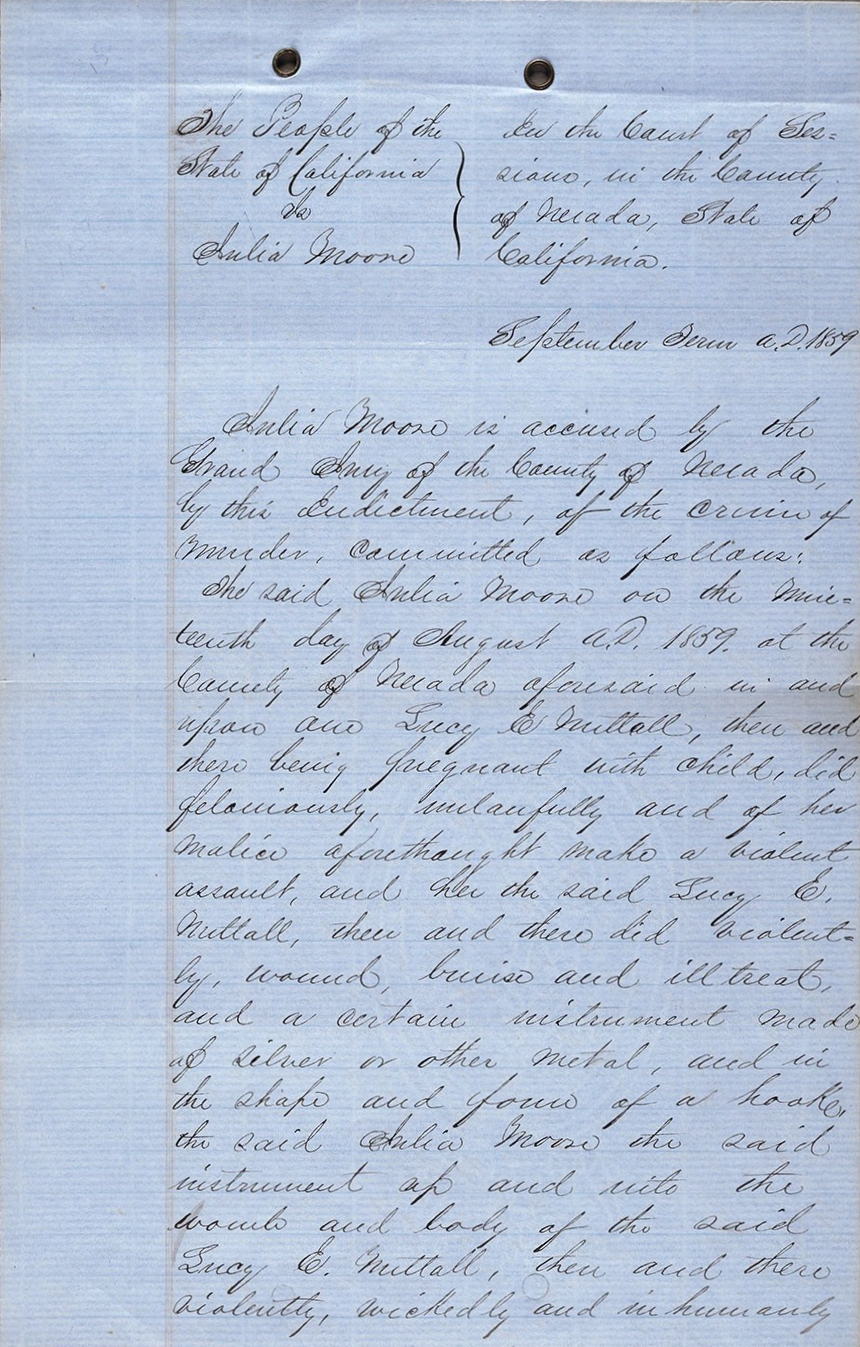 The People of the
State of California
vs
Julia Moore
In the Court of Ses=
sions, in the County
of Nevada, State of
California.
September Term A.D. 1859
Julia Moore is accused by the
Grand Jury of the County of Nevada,
by this Indictment, of the crime of
Murder, committed as follows:
The said Julia Moore on the Nine=
teenth day of August A.D. 1859. at the
County of Nevada aforesaid in and
upon one Lucy E Nuttall, then and
there being pregnant with child, did
feloniously, unlawfully and of her
malice aforethought make a violent
assault, and her the said Lucy E.
Nuttall, then and there did violent=
ly, wound, bruise and ill treat,
and a certain instrument made
of silver or other metal, and in
the shape and form of a hook,
the said Julia Moore the said
instrument up and into the
womb and body of the said
Lucy E. Nuttall, then and there
violently, wickedly and inhumanly